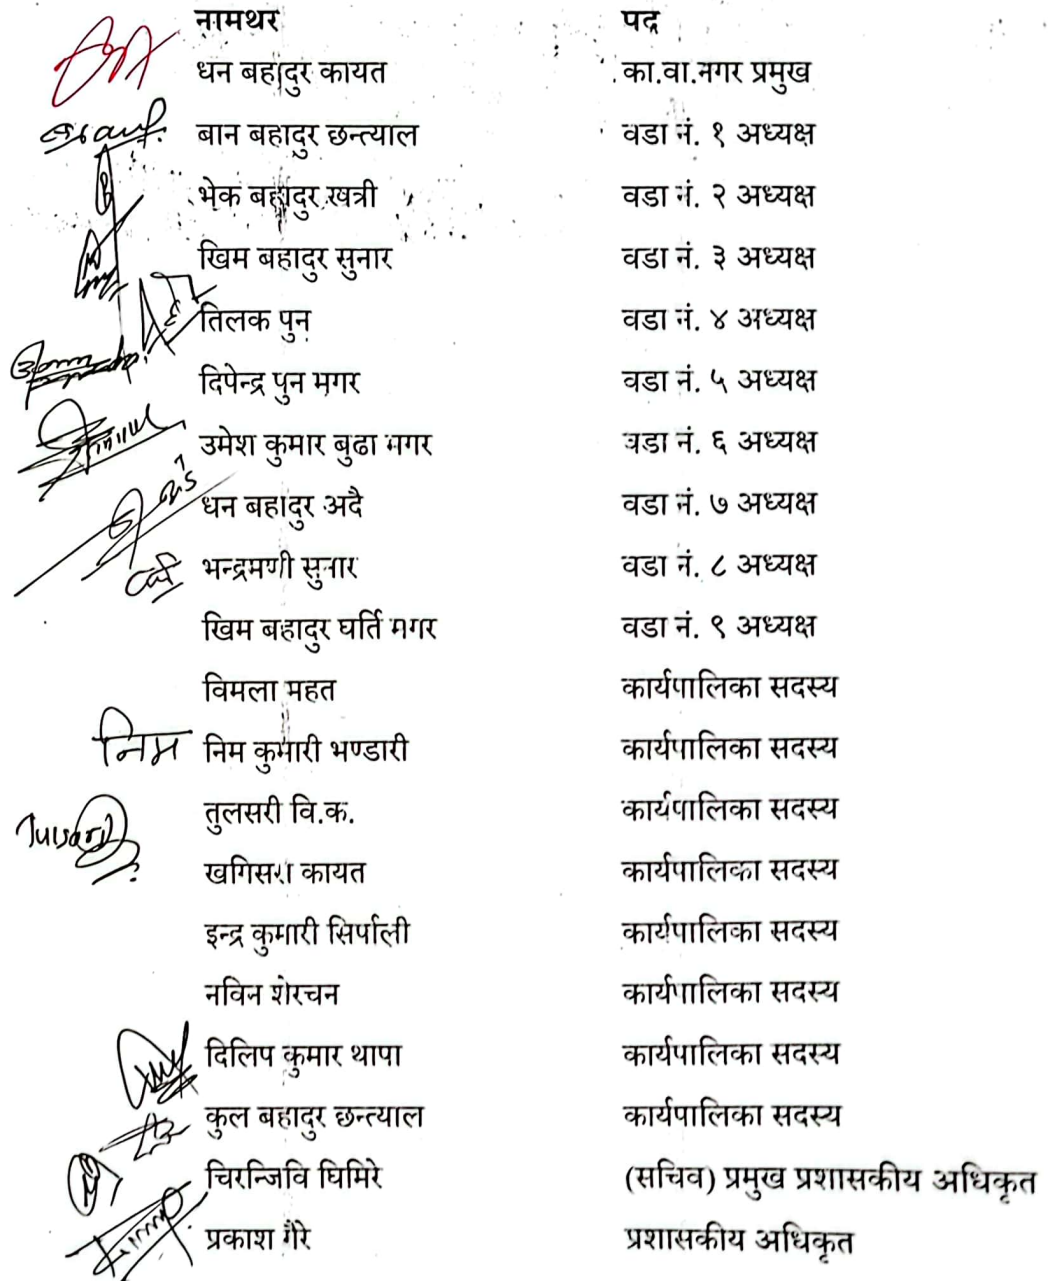 नामथर पद
धन बहादुर कायत का.वा.नगर प्रमुख
बान बहादुर छन्त्याल वडा नं. १ अध्यक्ष
भेक बहादुर खत्री वडा नं. २ अध्यक्ष
खिम बहादुर सुनार वडा नं. ३ अध्यक्ष
तिलक पुन वडा नं. ४ अध्यक्ष
दिपेन्द्र पुन मगर वडा नं. ५ अध्यक्ष
उमेश कुमार बुढा मगर वडा नं. ६ अध्यक्ष
धन बहादुर अदै वडा नं. ७ अध्यक्ष
भन्द्रमणी सुनार वडा नं. ८ अध्यक्ष
खिम बहादुर घर्ति मगर वडा नं. ९ अध्यक्ष
विमला महत कार्यपालिका सदस्य
निम निम कुमारी भण्डारी कार्यपालिका सदस्य
तुलसरी वि.क. कार्यपालिका सदस्य
खगिसरा कायत कार्यपालिका सदस्य
इन्द्र कुमारी सिर्पाली कार्यपालिका सदस्य
नविन शेरचन कार्यपालिका सदस्य
दिलिप कुमार थापा कार्यपालिका सदस्य
कुल बहादुर छन्त्याल कार्यपालिका सदस्य
चिरन्जिवि घिमिरे (सचिव) प्रमुख प्रशासकीय अधिकृत
प्रकाश गैरे प्रशासकीय अधिकृत